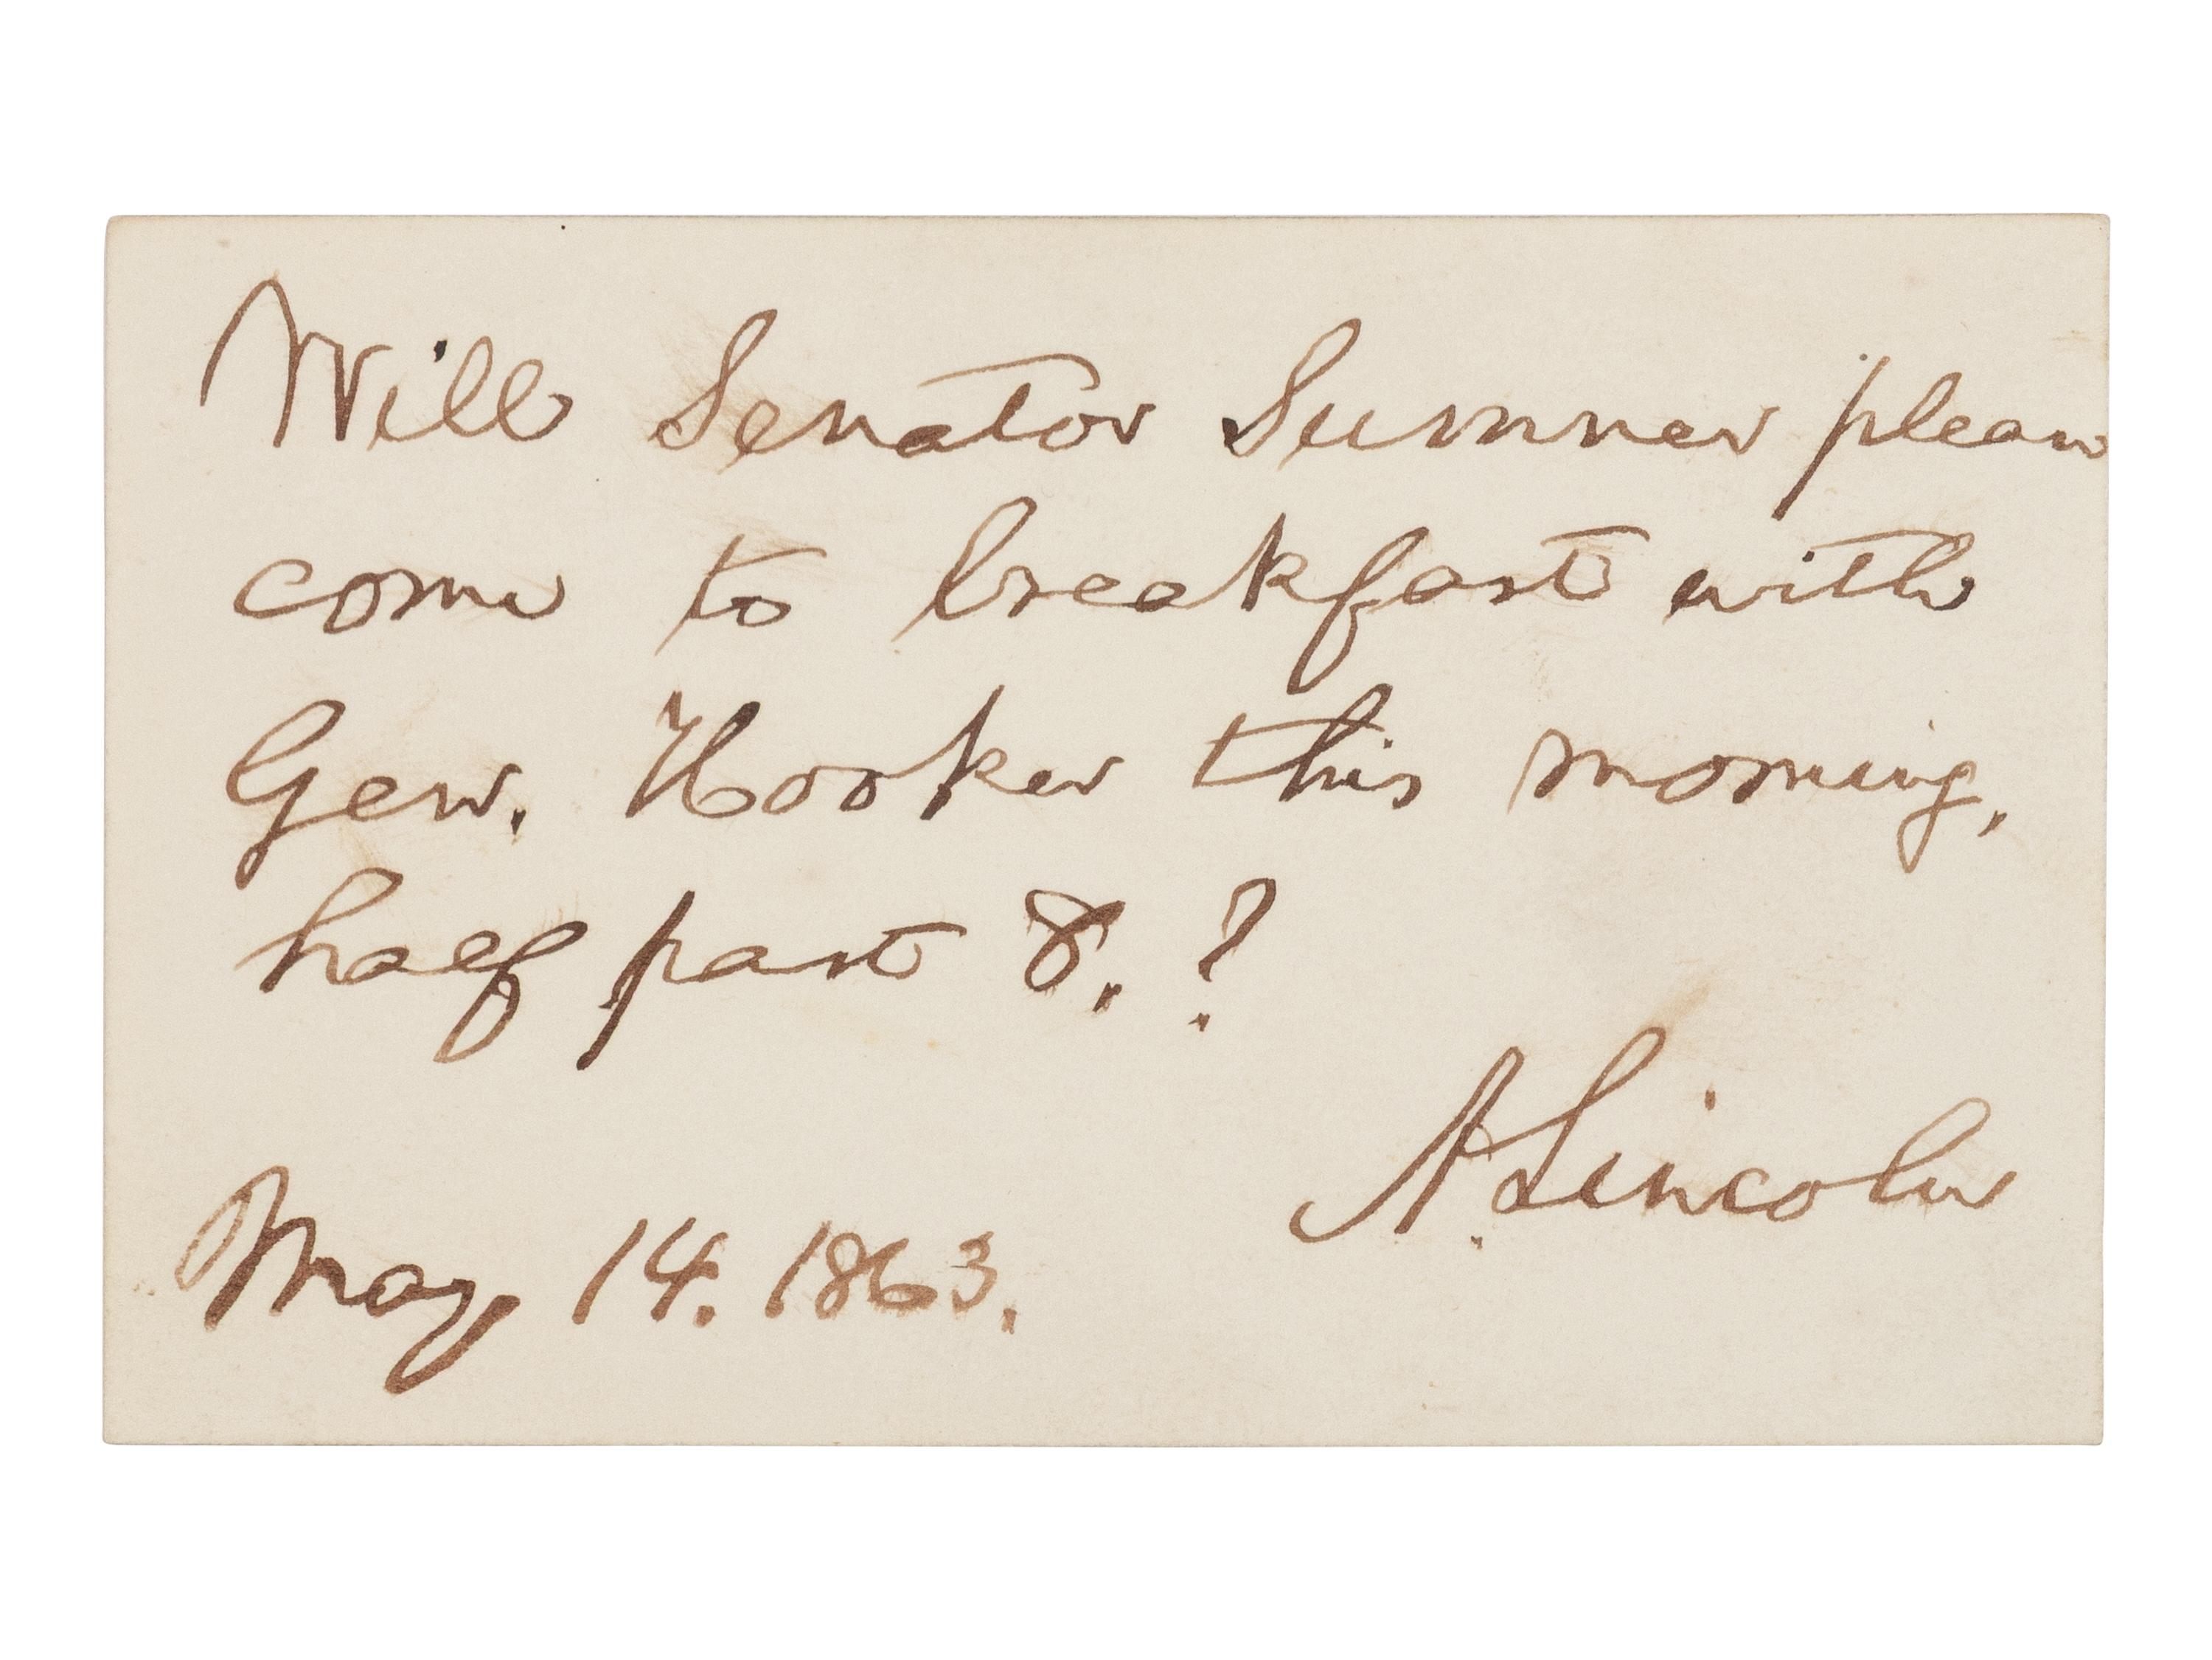 Will Senator Sumner please
come to breakfast with
Gen. Hooker this morning,
half past 8. ?
A. Lincoln
May 14. 1863.